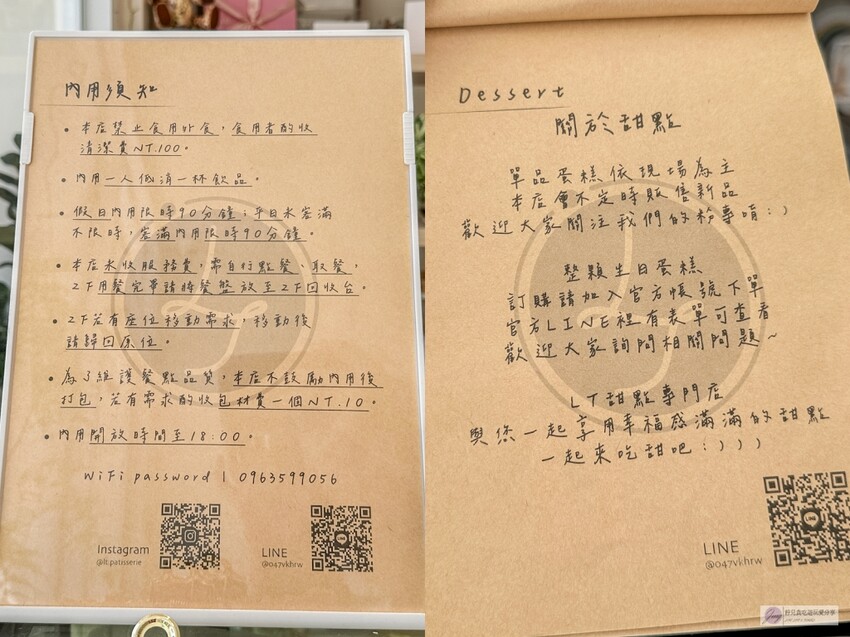 內用須知
• 本店禁止食用外食，食用者酌收
清潔費NT.100。
• 內用一人低消一杯飲品。
• 假日內用限時90分鐘；平日未客滿
不限時，客滿內用限時90分鐘。
• 本店未收服務費，需自行點餐、取餐，
2F用餐完畢請將餐盤放至2F回收台。
• 2F若有座位移動需求，移動後
請歸回原位。
• 為了維護餐點品質，本店不鼓勵內用後
打包，若有需求酌收包材費一個NT.10。
• 內用開放時間至18:00。
WiFi password | 0963599056
Instagram
@lt.patisserie
LINE
@047vkhrw
Dessert
關於甜點
單品蛋糕依現場為主
本店會不定時販售新品
歡迎大家關注我們的粉專唷:)
整顆生日蛋糕
訂購請加入官方帳號下單
官方LINE裡有表單可查看
歡迎大家詢問相關問題~
LT甜點專門店
與您一起享用幸福感滿滿的甜點
一起來吃甜吧:)))
LINE
@047vkhrw